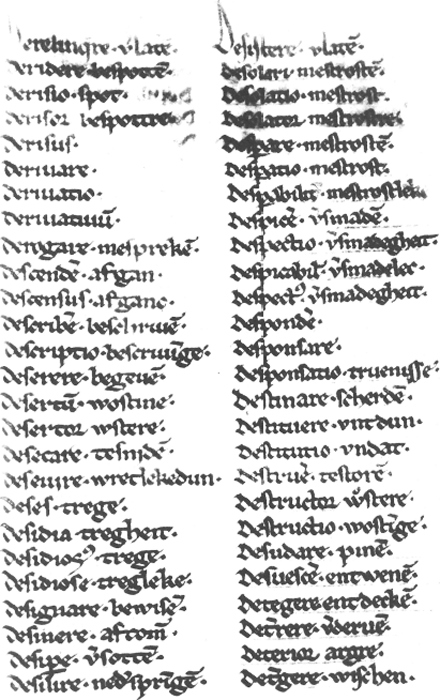 Derelinq̄re · v̄latē ·
Deridere · bespottē ·
Derisio · spot ·
Derisor bespottre
Derisus ·
Deriuare ·
Deriuatio ·
Deriuatiuū ·
Derogare · mesprekē ·
Descendē · afgan ·
Descensus · afganc ·
Describē · beschriuē ·
Descriptio · bescriuīge ·
Deserere · begeuē ·
Desertū · wostine ·
Desertor wstere ·
Desecare · tesnidē ·
Deseuire · wretlekedun ·
Deses · trege ·
Desidia · tregheit ·
Desidiosꝰ · trege ·
Desidiose · tregleke ·
Designare · bewisē ·
Desinere · aftom̄ ·
Desipe · v̄sottē ·
Desilire · ned̄sprīgē ·
Desistere · v̄latē ·
Desolari · mestrostē ·
Desolatio · mestrost ·
Desolator mestrostre ·
Despare · mestrostē ·
Despatio · mestrost ·
Despabilit̄ · mestrostlek
Despicē · v̄smadē ·
Despectio · v̄smadegheit ·
Despicabil̄ · v̄smadelec ·
Despectꝰ · v̄smadegheit ·
Despondē ·
Desponsare ·
Desponsatio · truenisse ·
Destinare · scherdē ·
Destituere · vntdun ·
Destitutio · vndat ·
Destruē · testorē ·
Destructor w̄stere ·
Destructio · wostīge ·
Desudare · pinē ·
Desuescē · entwenē ·
Detegere · entdeckē ·
Det̄rere · v̄deruē ·
Deterior argre ·
Det̄gere · wischen ·